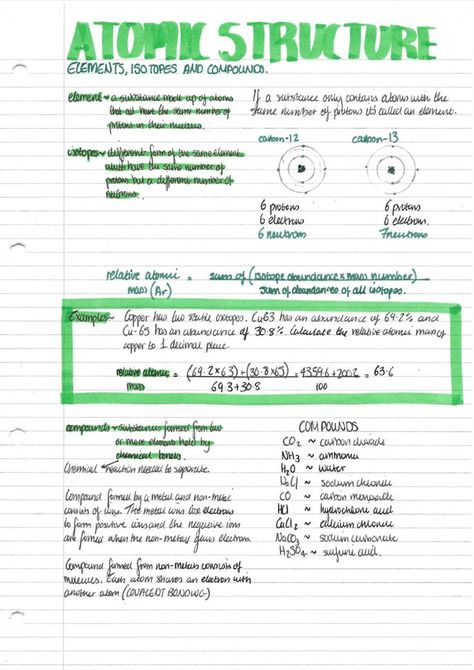 ATOMIC STRUCTURE
ELEMENTS, ISOTOPES AND COMPOUNDS.
element ~ a substance made up of atoms
that all have the same number of
protons in their nucleus.
If a substance only contains atoms with the
same number of protons its called an element.
isotopes ~ different form of the same element,
which have the same number of
protons but a different number of
neutrons.
carbon-12
6 protons
6 electrons
6 neutrons
carbon-13
6 protons
6 electrons.
7 neutrons
relative atomic = sum of (isotope abundance × mass number)
mass (Ar) sum of abundances of all isotopes.
Examples ~ Copper has two stable isotopes. Cu-63 has an abundance of 69.2% and
Cu-65 has an abundance of 30.8%. Calculate the relative atomic mass of
copper to 1 decimal place.
relative atomic = (69.2×63)+(30.8×65) = 4359.6+2002 = 63.6
mass 69.3+30.8 100
compounds ~ substances formed from two
or more elements held by
chemical bonds.
Chemical reaction needed to separate.
Compound formed by a metal and non-metal
consists of ions. The metal ions lose electrons
to form positive ions and the negative ions
are formed when the non-metals gains electrons.
Compound formed from non-metals consists of
molecules. Each atom shares an electron with
another atom (COVALENT BONDING)
COMPOUNDS
CO2 ~ carbon dioxide
NH3 ~ ammonia
H2O ~ water
NaCl ~ sodium chloride
CO ~ carbon monoxide
HCl ~ hydrochloric acid
CaCl2 ~ calcium chloride
NaCO3 ~ sodium carbonate
H2SO4 ~ sulfuric acid.